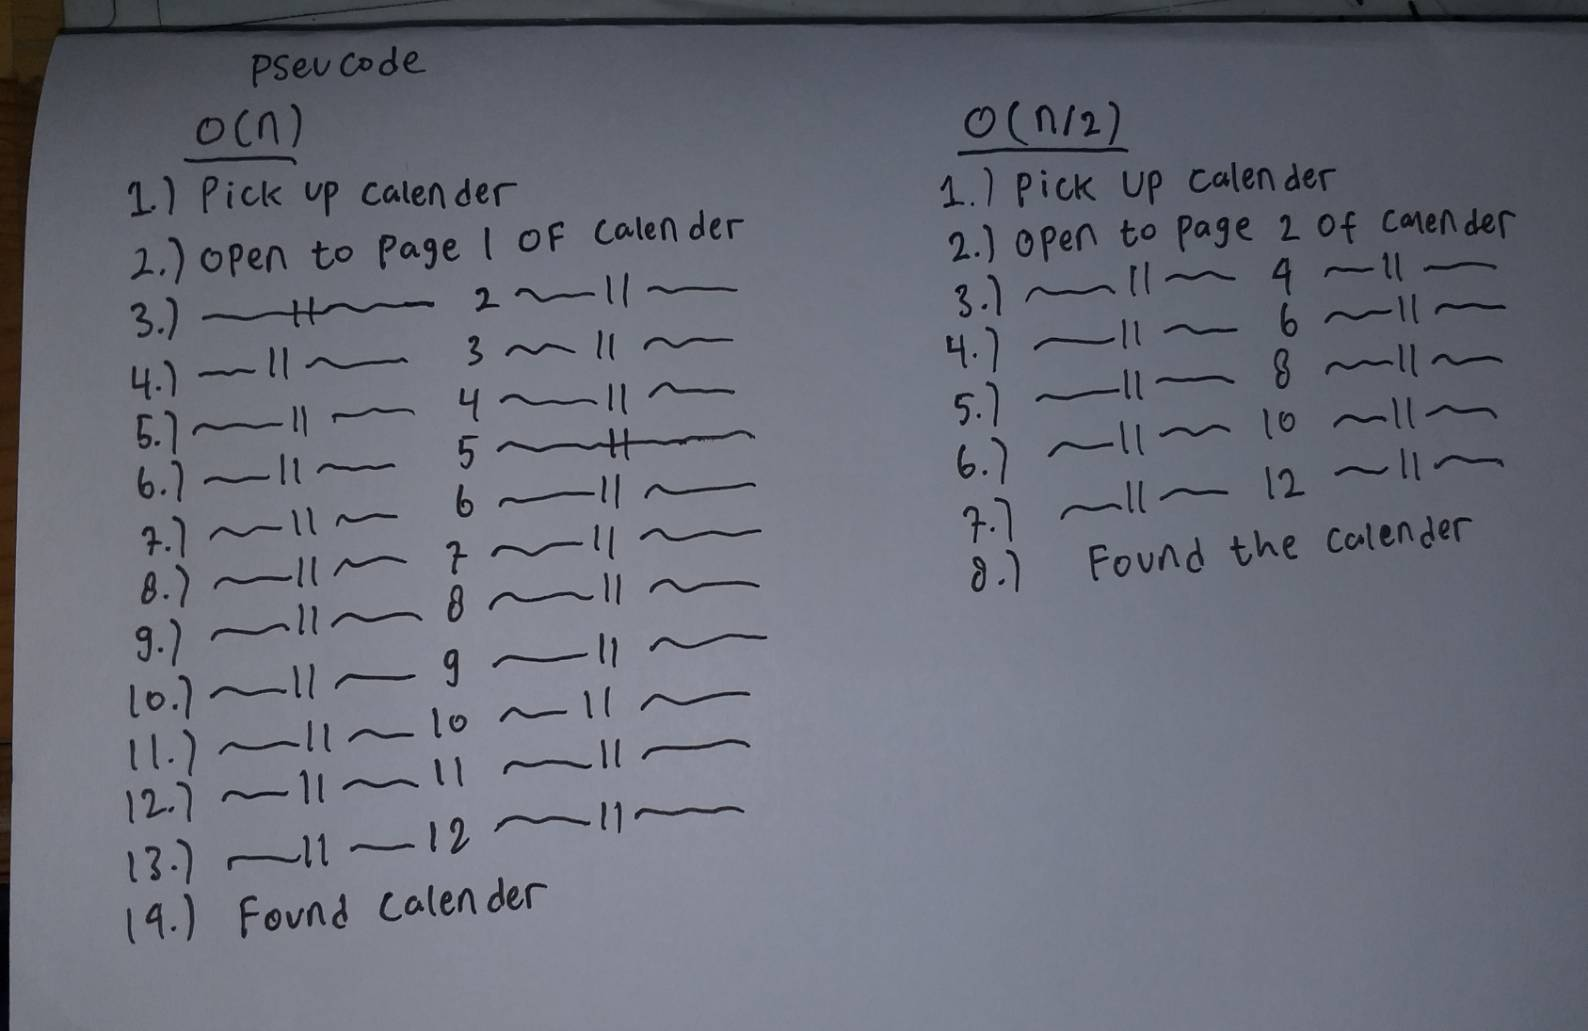 Pseucode
O(n)
1.) Pick up calender
2.) open to page 1 OF calender
3.) —〃— 2 —〃—
4.) —〃— 3 —〃—
5.) —〃— 4 —〃—
6.) —〃— 5 —〃—
7.) —〃— 6 —〃—
8.) —〃— 7 —〃—
9.) —〃— 8 —〃—
10.) —〃— 9 —〃—
11.) —〃— 10 —〃—
12.) —〃— 11 —〃—
13.) —〃— 12 —〃—
14.) Found calender
O(n/2)
1.) Pick up calender
2.) open to page 2 of calender
3.) —〃— 4 —〃—
4.) —〃— 6 —〃—
5.) —〃— 8 —〃—
6.) —〃— 10 —〃—
7.) —〃— 12 —〃—
8.) Found the calender